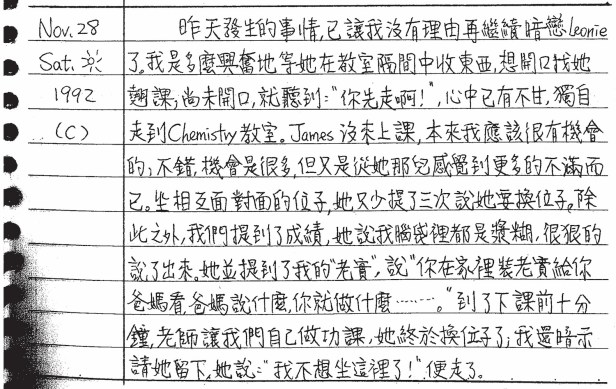 Nov. 28 昨天發生的事情,已讓我沒有理由再繼續暗戀Leonie
Sat. 了。我是多麼興奮地等她在教室隔間中收東西,想開口找她
1992 翹課;尚未開口,就聽到:"你先走啊!",心中已有不甘,獨自
(C) 走到Chemistry教室。James沒來上課,本來我應該很有機會
的;不錯,機會是很多,但又是從她那兒感覺到更多的不滿而
已。坐相互面對面的位子,她又少提了三次說她要換位子。除
此之外,我們提到了成績,她說我腦袋裡都是漿糊,很狠的
說了出來。她並提到了我的"老實",說"你在家裡裝老實給你
爸媽看,爸媽說什麼,你就做什麼………。"到了下課前十分
鐘,老師讓我們自己做功課,她終於換位子了;我還暗示
請她留下,她說:"我不想坐這裡了!",便走了。